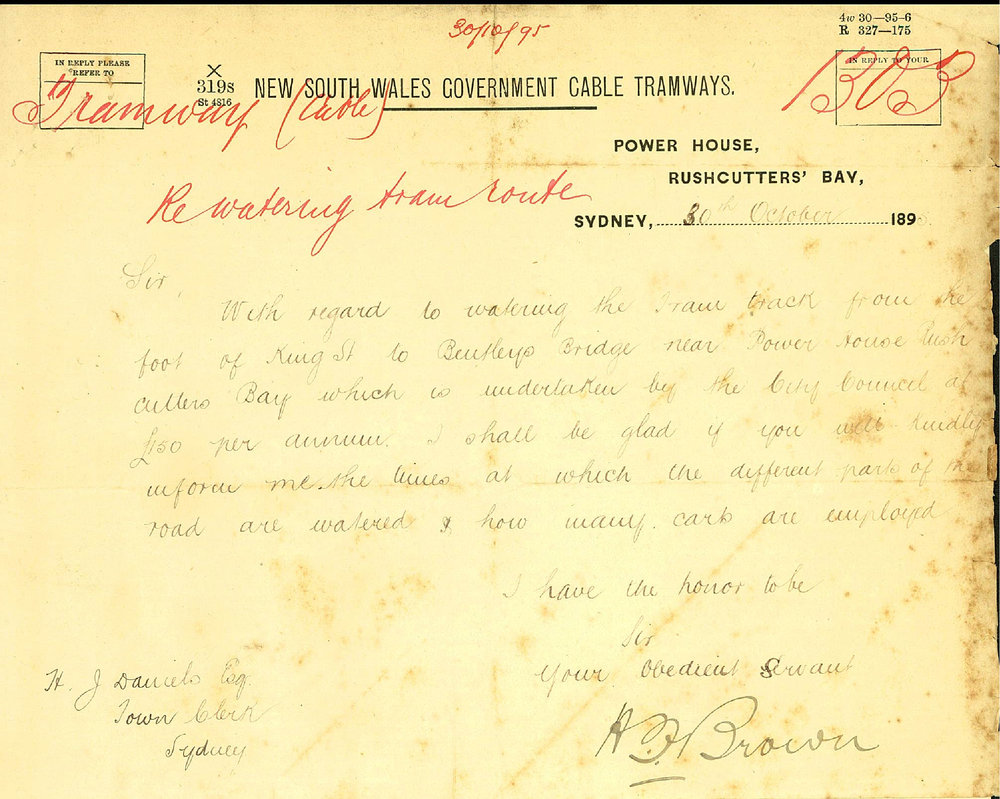 30/10/95
4w 30—95-6
R 327—175
IN REPLY PLEASE
REFER TO
X
319s
St 4816
NEW SOUTH WALES GOVERNMENT CABLE TRAMWAYS.
IN REPLY TO YOUR
1303
Tramway (Cable)
POWER HOUSE,
RUSHCUTTERS' BAY,
Re watering tram route
SYDNEY, 30th October 1895
Sir,
With regard to watering the Tram track from the
foot of King St to Bentleys Bridge near Power House Rush
cutters Bay which is undertaken by the City Council at
£150 per annum. I shall be glad if you will kindly
inform me the times at which the different parts of the
road are watered & how many carts are employed
I have the honor to be
Sir
Your Obedient Servant
H. J Daniels Esq.
Town Clerk
Sydney
Brown